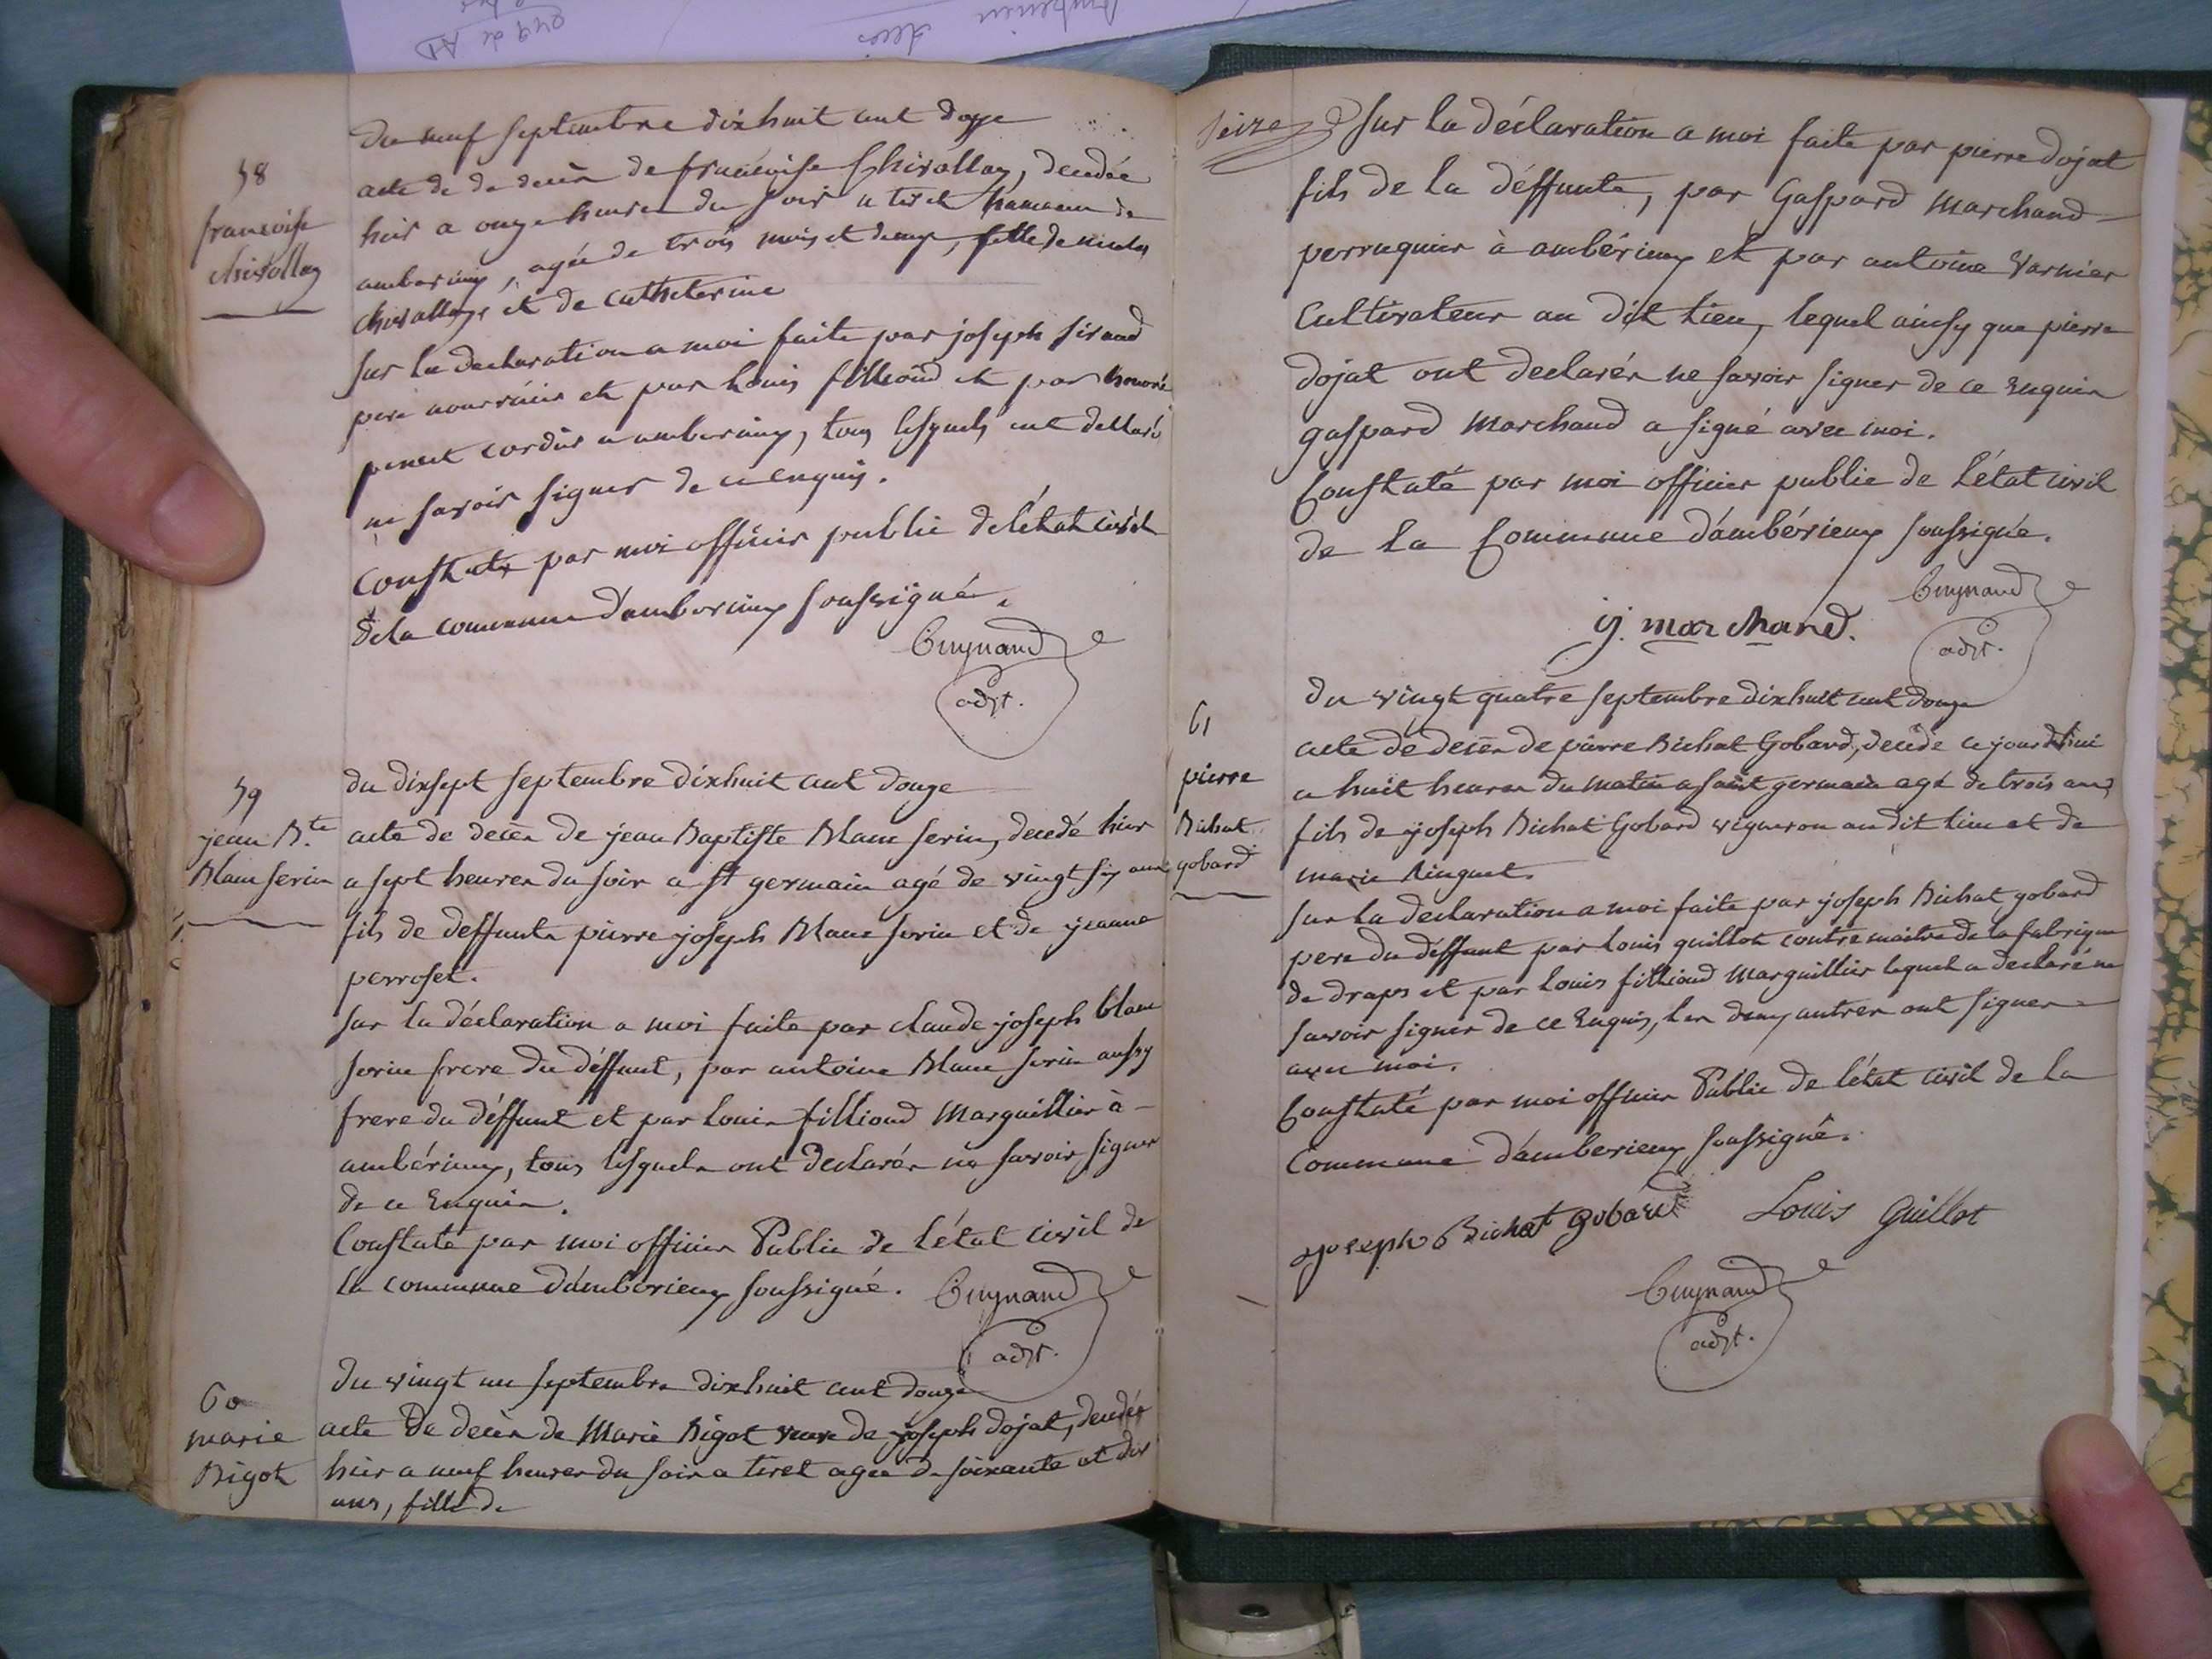 58
françoise
chivollay
du neuf septembre dixhuit cent doze
acte de de decès de françoise Chivollay, decedée
hier a onze heures du soir a tiret hameau de
amberieux, agée de trois mois et demy, fille de nicolas
chivollay et de Catheterine
sur la declaration a moi faite par joseph sirand
pere nourricier et par louis fillioud et par honoré
penet cordier a amberieux, tous lesquels ont declarés
ne savoir signer de ce enquis.
Constaté par moi officier public de l'état civil
de la commune d'amberieux soussigné.
Guynand
adjt.
59
jean Bte
Blanc serin
du dixsept septembre dixhuit cent douze
acte de decès de jean Baptiste Blanc serin, decedé hier
a sept heures du soir a st germain agé de vingt six ans
fils de deffunts pierre joseph Blanc serin et de jeanne
perroset.
sur la déclaration a moi faite par claude joseph blanc
serin frere du déffunt, par antoine Blanc serin aussy
frere du déffunt et par Louis fillioud Marguillier à
ambérieux, tous lesquels ont declarés ne savoir signer
de ce Enquis.
Constaté par moi officier Public de l'état civil de
la commune d'ambérieux soussigné.
Guynand
adjt.
60
marie
Bigot
du vingt un septembre dixhuit cent douze
acte De decès de Marie Bigot veuve de joseph dojat, decedée
hier a neuf heures du soir a tiret agée de soixante et dix
ans, fille de
seize
sur la déclaration a moi faite par pierre dojat
fils de la déffunte, par Gaspard Marchand
perruquier à ambérieux et par antoine Varnier
Cultivateur au dit lieu, lequel ainsy que pierre
dojat ont declarés ne savoir signer de ce Enquis
gaspard Marchand a signé avec moi.
Constaté par moi officier public de l'état civil
de la Commune d'ambérieux soussigné.
Guynand
adjt.
g. marchand.
61
pierre
Bichat
gobard
du vingt quatre septembre dixhuit cent douze
acte de decès de pierre Bichat Gobard, decédé ce jourd'hui
a huit heures du matin a saint germain agé de trois ans,
fils de joseph Bichat Gobard vigneron au dit lieu et de
marie Ringuet.
sur la declaration a moi faite par joseph Bichat gobard
pere du déffunt par louis guillot contre maitre de la fabrique
de draps et par louis fillioud Marguillier lequel a declaré ne
savoir signer de ce Enquis, les deux autres ont signer
avec moi.
Constaté par moi officier Public de l'état civil de la
Commune d'amberieux soussigné.
joseph Bichat gobard
Louis Guillot
Guynand
adjt.